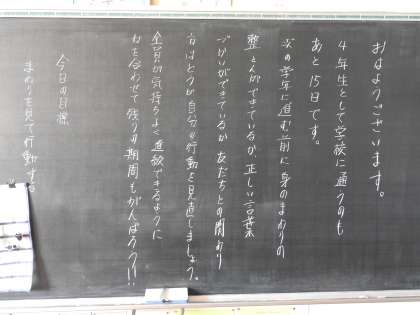 おはようございます。
4年生として学校に通うのも
あと15日です。
次の学年に進む前に身のまわりの
整とんができているか正しい言葉
づかいができているか友だちとの関わり
方はどうか自分の行動を見直しましょう。
全員が気持ちよく進級できるように
力を合わせて残りの期間もがんばろう!!
今日の目標
まわりを見て行動する